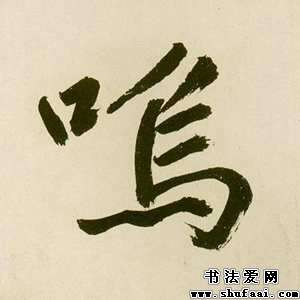 嗚
书法爱网
www.shufaai.com